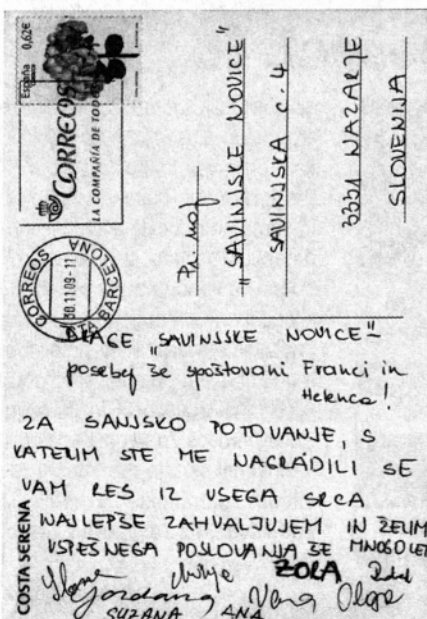 España 0,62€
CORREOS
LA COMPAÑIA DE TODOS
CORREOS
30.11.09-11
BARCELONA
"SAVINJSKE NOVICE"
SAVINJSKA c. 4
3331 NAZARJE
SLOVENIJA
DRAGE "SAVINJSKE NOVICE"
posebej še spoštovani Franci in
Helenca!
ZA SANJSKO POTOVANJE, S
KATERIM STE ME NAGRADILI SE
VAM RES IZ VSEGA SRCA
NAJLEPŠE ZAHVALJUJEM IN ŽELIM
USPEŠNEGA POSLOVANJA ŠE MNOGO LET
ZORA
Gordana Vera Olga
SUZANA ANA
COSTA SERENA